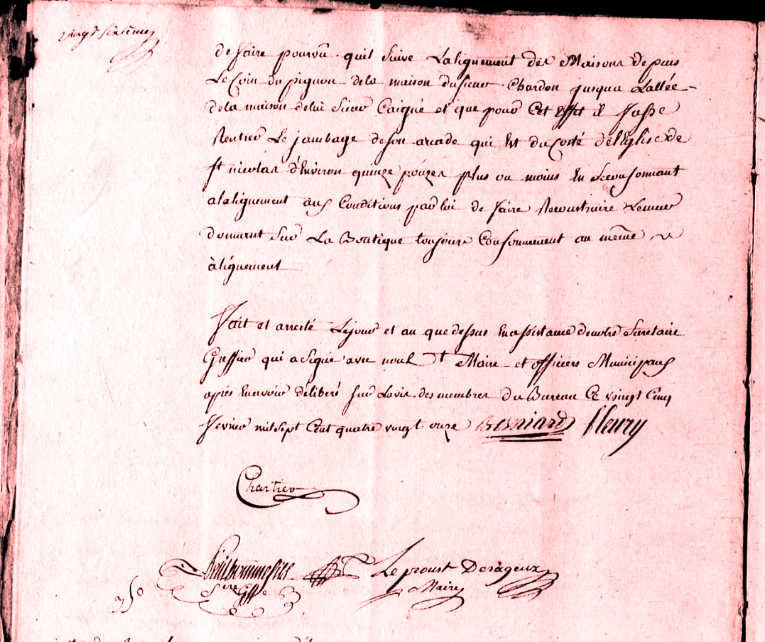 vingt sixieme
de faire pourvû quil suive Lalignement des Maisons depuis
Le Coin du pignon dela maison du sieur Chardon jusqua Lallée
dela maison delui Sieur Caigné et que pour Cet Effet il fasse
Rentrer Le jambage deson arcade qui Est du Costé de l'Eglise de
st nicolas d'Environ quinze pouces plus ou moins En Se Conformant
alalignement aux Conditions par lui de faire Reconstruire Lemur
donnant Sur La Boutique toujours Conformement au même
àlignement
Fait et arreté Lejour et an que dessus En assistance denotre Secretaire
Greffier qui a Signé avec nous Maire et officiers Municipaux
après En avoir déliberé Sur Lavis des membres du Bureau Ce vingt Cinq
fevrier mil sept Cent quatre vingt onze Besniard fleury
Chartier
Sre Gffr
Le proust Derageux
Maire